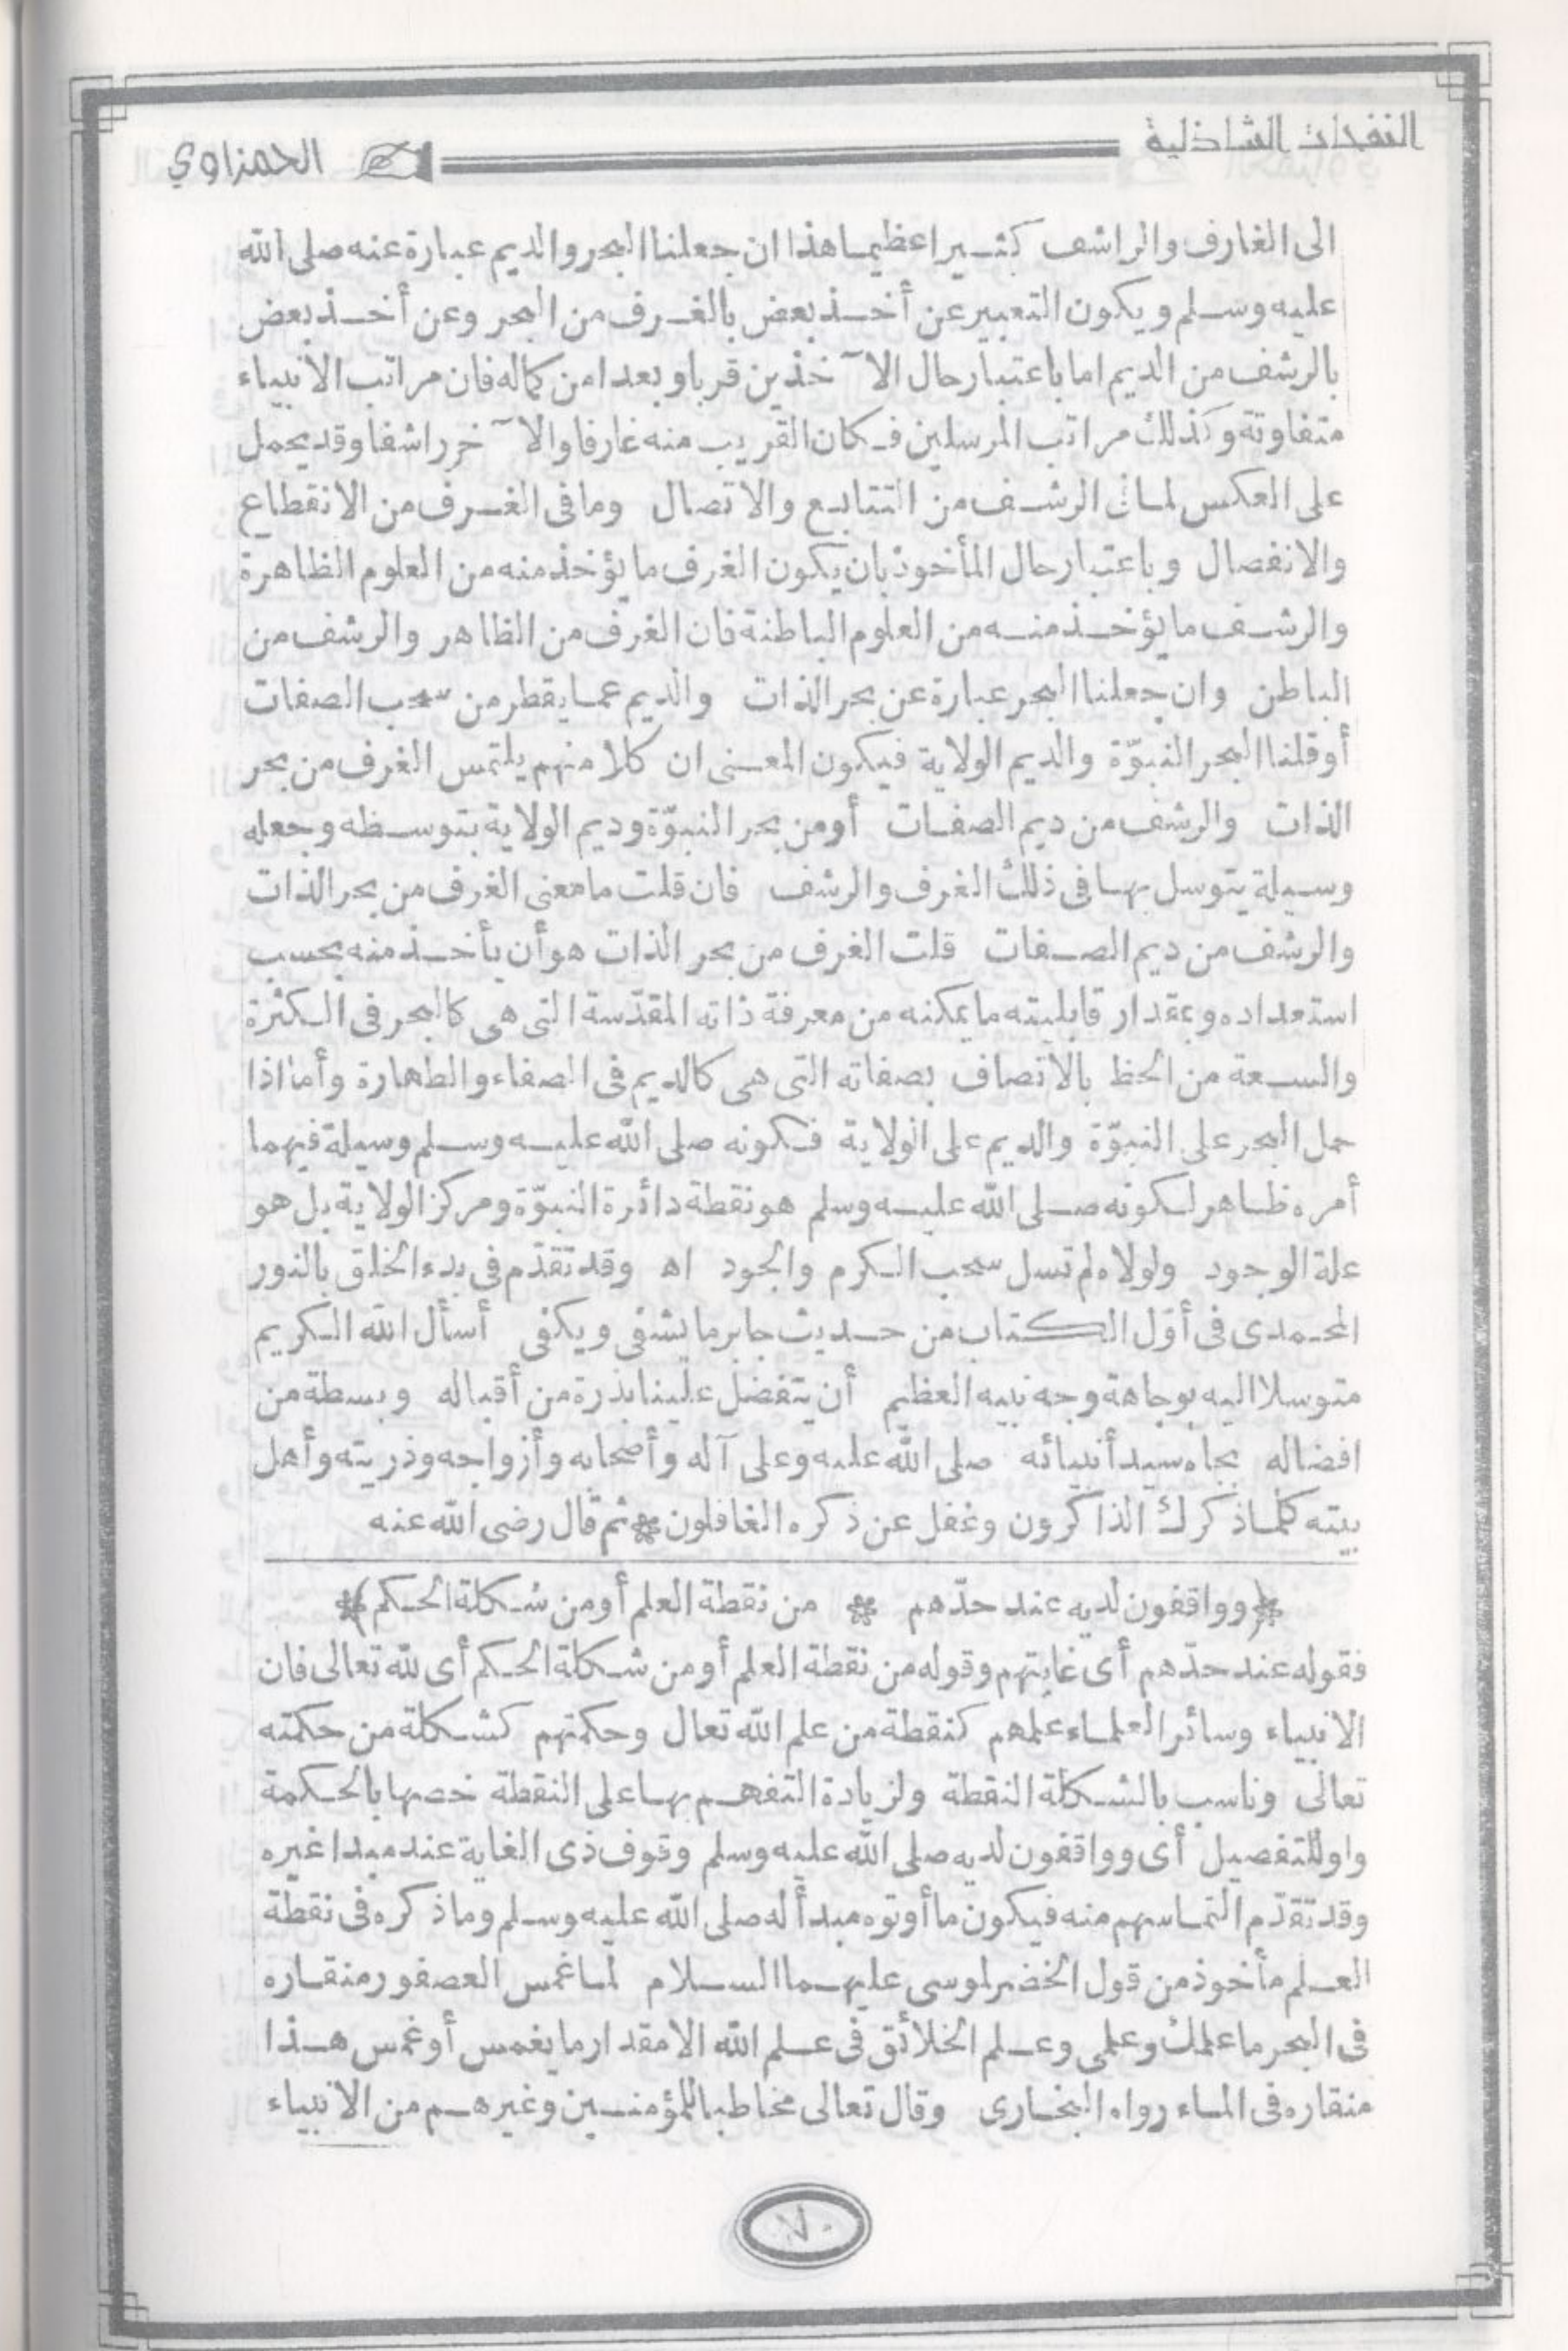 النفحات الشاذلية
الحمزاوي
الى الغارف والراشف كثيرا عظيما هذا ان جعلنا البحر والديم عبارة عنه صلى الله
عليه وسلم ويكون التعبير عن أخذ بعض بالغرف من البحر وعن أخذ بعض
بالرشف من الديم اما باعتبار حال الآخذين قربا وبعدا من كماله فان مراتب الانبياء
متفاوتة وكذلك مراتب المرسلين فكان القريب منه غارفا والآخر راشفا وقد يحمل
على العكس لما فى الرشف من التتابع والاتصال وما فى الغرف من الانقطاع
والانفصال وباعتبار حال المأخوذ بان يكون الغرف ما يؤخذ منه من العلوم الظاهرة
والرشف ما يؤخذ منه من العلوم الباطنة فان الغرف من الظاهر والرشف من
الباطن وان جعلنا البحر عبارة عن بحر الذات والديم عما يقطر من سحب الصفات
أو قلنا البحر النبوّة والديم الولاية فيكون المعنى ان كلا منهم يلتمس الغرف من بحر
الذات والرشف من ديم الصفات أو من بحر النبوّة وديم الولاية بتوسطه وجعله
وسيلة يتوسل بها فى ذلك الغرف والرشف فان قلت ما معنى الغرف من بحر الذات
والرشف من ديم الصفات قلت الغرف من بحر الذات هو أن يأخذ منه بحسب
استعداده وبمقدار قابليته ما يمكنه من معرفة ذاته المقدّسة التى هى كالبحر فى الكثرة
والسعة من الحظ بالاتصاف بصفاته التى هى كالديم فى الصفاء والطهارة وأما اذا
حمل البحر على النبوّة والديم على الولاية فكونه صلى الله عليه وسلم وسيلة فيهما
أمره ظاهر لكونه صلى الله عليه وسلم هو نقطة دائرة النبوّة ومركز الولاية بل هو
علة الوجود ولولاه لم تسل سحب الكرم والجود اه وقد تقدّم فى بدء الخلق بالنور
المحمدى فى أوّل الكتاب من حديث جابر ما يشفى ويكفى أسأل الله الكريم
متوسلا اليه بوجاهة وجه نبيه العظيم أن يتفضل علينا بذرة من أقباله وبسطة من
افضاله بجاه سيد أنبيائه صلى الله عليه وعلى آله وأصحابه وأزواجه وذريته وأهل
بيته كلما ذكرك الذاكرون وغفل عن ذكره الغافلون * ثم قال رضى الله عنه
(وواقفون لديه عند حدّهم * من نقطة العلم أو من شكلة الحكم)
فقوله عند حدّهم أى غايتهم وقوله من نقطة العلم أو من شكلة الحكم أى لله تعالى فان
الانبياء وسائر العلماء علمهم كنقطة من علم الله تعال وحكمتهم كشكلة من حكمته
تعالى وناسب بالشكلة النقطة ولزيادة التفهم بها على النقطة خصها بالحكمة
واو للتفصيل أى وواقفون لديه صلى الله عليه وسلم وقوف ذى الغاية عند مبدا غيره
وقد تقدّم التماسهم منه فيكون ما أوتوه مبدأ له صلى الله عليه وسلم وما ذكره فى نقطة
العلم مأخوذ من قول الخضر لموسى عليهما السلام لما غمس العصفور منقاره
فى البحر ما علمك وعلمى وعلم الخلائق فى علم الله الا مقدار ما يغمس أو غمس هذا
منقاره فى الماء رواه البخارى وقال تعالى مخاطبا للمؤمنين وغيرهم من الانبياء
٧٠